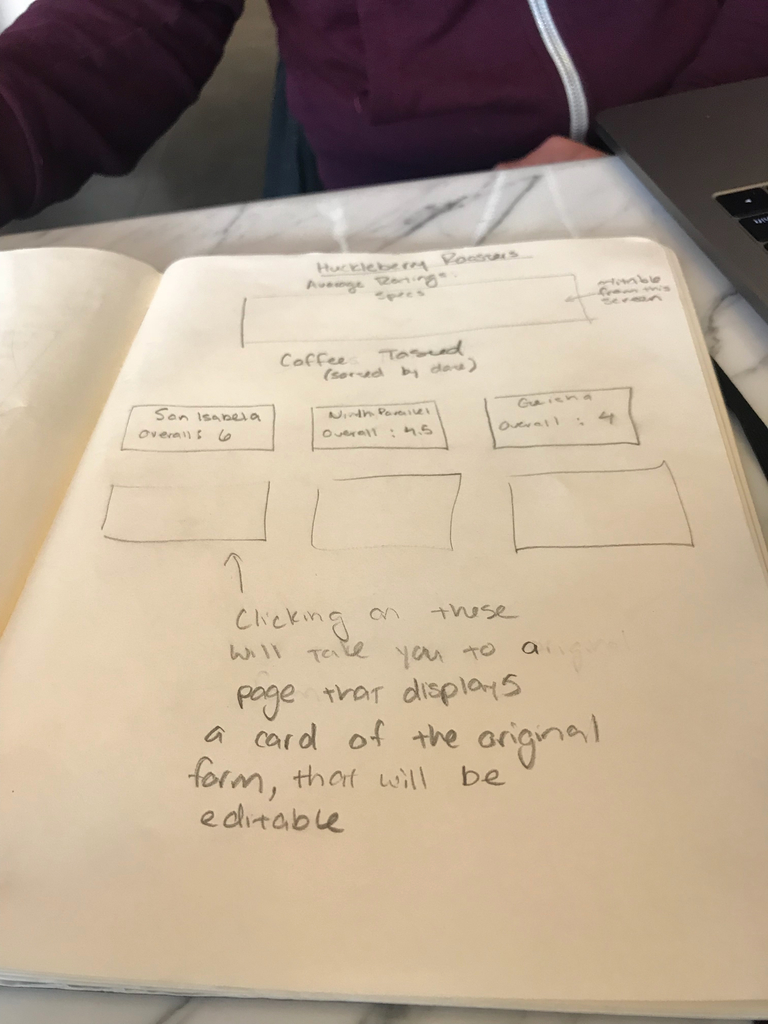 Huckleberry Roasters
Average Ratings:
Specs
from this
screen
Coffee Tasted
(sorted by date)
San Isabela
Overall: 6
Ninth Parallel
Overall : 4.5
Geisha
Overall : 4
Clicking on these
will take you to a
page that displays
a card of the original
form, that will be
editable